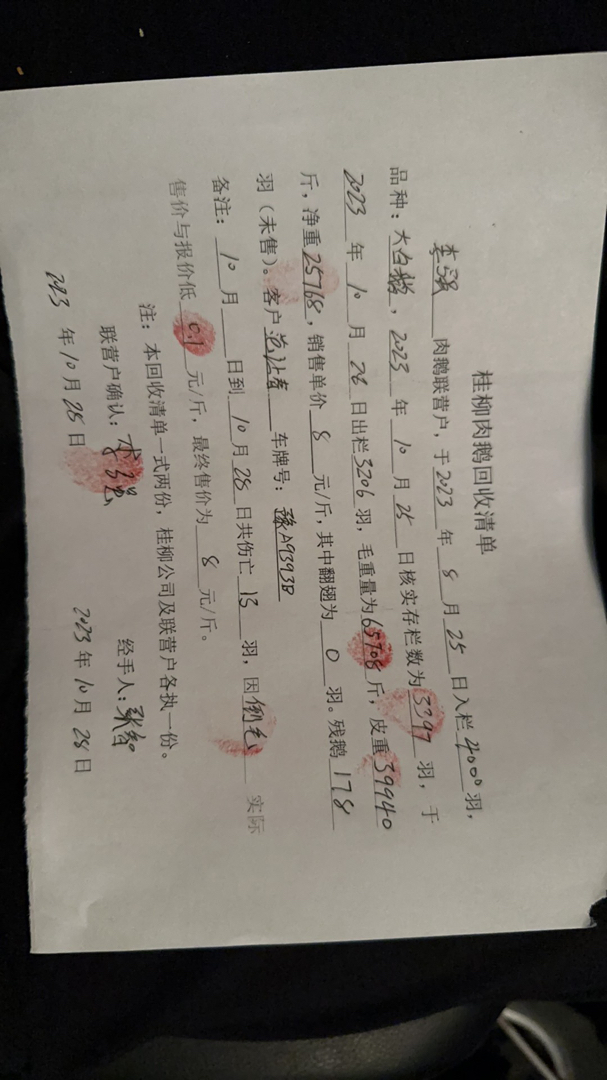 桂柳肉鹅回收清单
李强 肉鹅联营户，于2023年8月25日入栏4000羽，
品种：大白鹅，2023年10月25日核实存栏数为3397羽，于
2023年10月28日出栏3206羽，毛重量为65708斤，皮重39940
斤，净重25768，销售单价8元/斤，其中翻翅为0羽。残鹅178
羽（未售）。客户 车牌号：豫A9393B
备注：10月 日到10月28日共伤亡13羽，因倒毛 实际
售价与报价低0.1元/斤，最终售价为8元/斤。
注：本回收清单一式两份，桂柳公司及联营户各执一份。
联营户确认：李强 经手人：张智
2023年10月28日 2023年10月28日